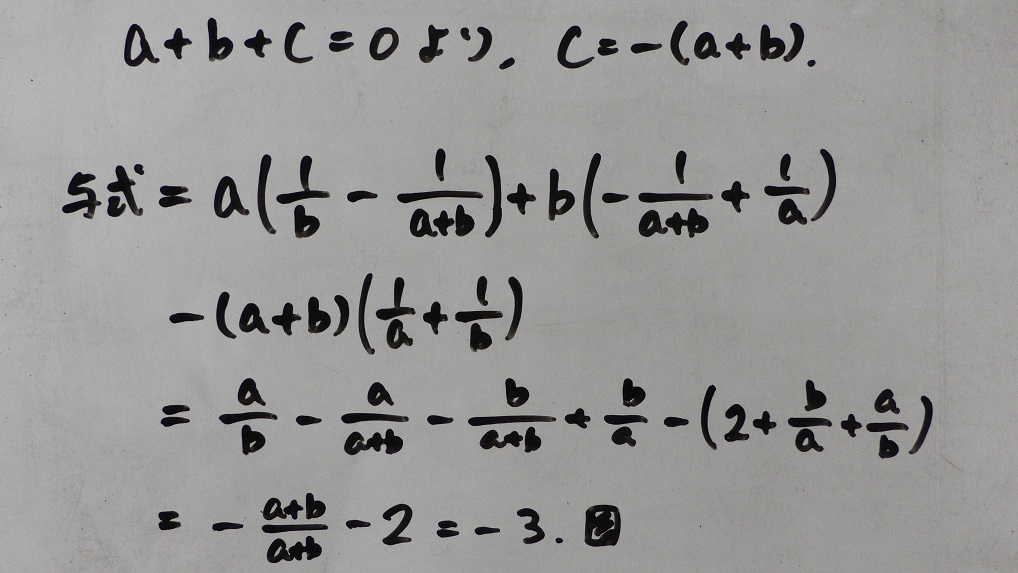 a+b+c=0より, c=-(a+b).
与式=a(1/b - 1/(a+b))+b(-1/(a+b) + 1/a)
-(a+b)(1/a + 1/b)
= a/b - a/(a+b) - b/(a+b) + b/a -(2+ b/a + a/b)
= - (a+b)/(a+b) -2=-3.